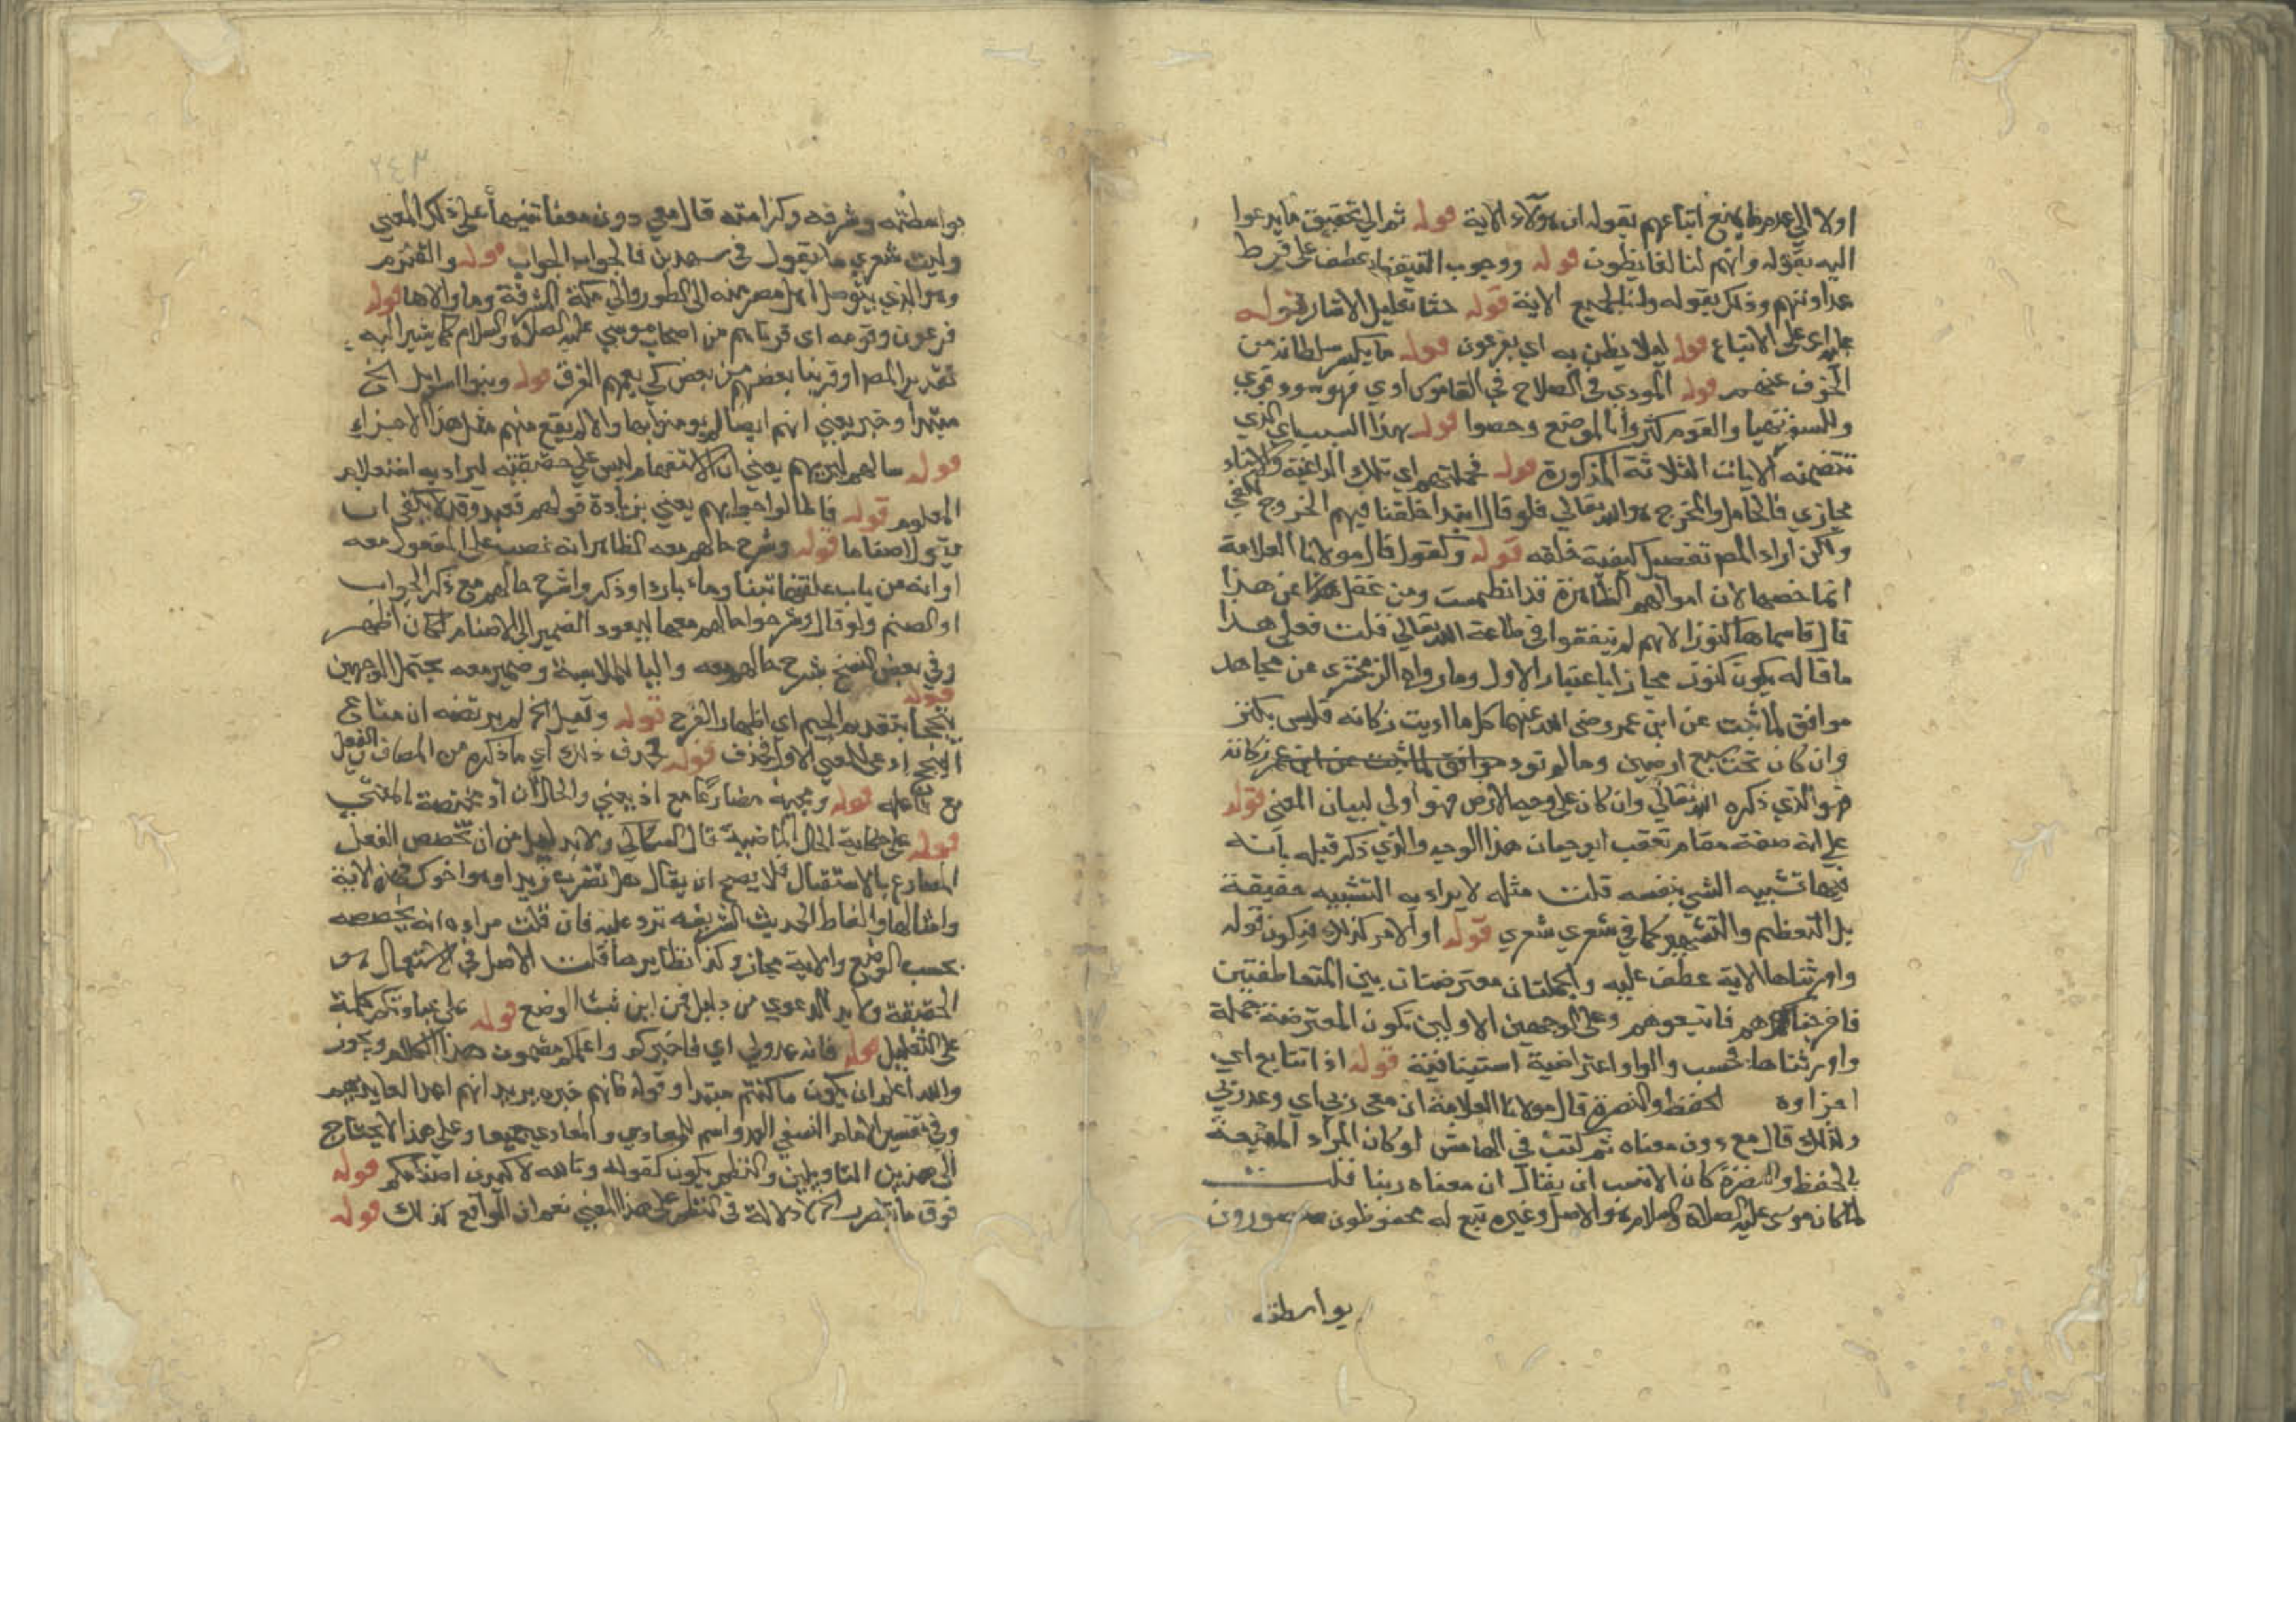 اولا الي عدم ما يمنع اتباعهم بقوله ان هؤلاء الاية قوله ثم الي تحقيق ما يدعوا
اليه بقوله وانهم لنا لغايظون قوله ووجوب التيقظ عطف علي فرط
عداوتهم وذلك بقوله وانا لجميع الاية قوله حثا تعليل لاشار قوله
عليه اي علي الاتباع قوله ليلا يظن به اي بفرعون قوله ما يكسر سلطانه من
الخوف عنهم قوله المودي في السلاح في القاموس اودي فهو مود قوي
وللسفر تهيا والقوم كثروا بالموضع وحصوا قوله بهذا السبب اي الذي
تتضمنه الايات الثلاثة المذكورة قوله فحملتهم اي تلك الداعية والاسناد
مجازي فالحامل والمخرج هو الله تعالي فلو قال ابتدا خلقنا فيهم الخروج لكفي
ولكن اراد المص تفصيل كيفية خلقه قوله وكنوز قال مولانا العلامة
انما خصها لان اموالهم الظاهرة قد انطمست ومن غفل عن هذا
قال قاسماها كنوزا لانهم لم ينفقوا في طاعة الله تعالي قلت فعلي هذا
ما قاله يكون كنوز مجازا باعتبار الاول وما رواه الزمخشري عن مجاهد
موافق لما ثبت عن ابن عمر رضي الله عنهما كل ما اديت زكاته فليس بكنز
وان كان تحت سبع ارضين وما لم تود موافق لما ثبت عن ابن عمر زكاته
فهو الذي ذكره الله تعالي وان كان علي وجه الارض فهو اولي لبيان المعني قوله
علي انه صفة مقام تعقب ابو حيان هذا الوجه والذي ذكر قبله بانه
فيهما تشبيه الشي بنفسه قلت مثله لا يراد به التشبيه حقيقة
بل التعظيم والتشهير كما في شعري شعري قوله او الامر كذلك فيكون قوله
واورثناها الاية عطف عليه والجملتان معترضتان بين المتعاطفتين
فاخرجناهم فاتبعوهم وعلي الوجهين الاولين تكون المعترضة جملة
واورثناها فحسب والواو اعتراضية استينافية قوله اذا تتابع اي
اجزاوه الحفظ والنصرة قال مولانا العلامة ان معي ربي اي وعد ربي
ولذلك قال مع دون معناه ثم كتب في الهامش لو كان المراد المعية
بالحفظ والنصرة كان الانسب ان يقال ان معناه ربنا قلت
لما كان موسي عليه الصلاة والسلام هو الاصل وغيره تبع له محفوظون منصورون
بواسطته
٢٤٣
بواسطته وشرفه وكرامته قال معي دون معنا تنبيها علي ذلك المعني
وليت شعري ما يقول في سيهدين فالجواب الجواب قوله والقلزم
وهو الذي يتوصل اهل مصر منه الي الطور والي مكة المشرفة وما والاها قوله
فرعون وقومه اي قربناهم من اصحاب موسي عليه الصلاة والسلام كما يشير اليه
تقدير المص او قربنا بعضهم من بعض كي يعمهم الغرق قوله وبنوا اسرايل الخ
مبتدا وخبر يعني انهم ايضا لم يومنوا بها والا لم يقع منهم مثل هذا الاجتراء
قوله سالهم ليريهم يعني ان الاستفهام ليس علي حقيقته ليراد به استعلام
المعلوم قوله فاطالوا جوابهم يعني بزيادة قولهم نعبد وقد كان يكفي ان
يقولوا صناما قوله وشرح حالهم معه الظاهر انه نصب علي المفعول معه
او انه من باب علفتها تبنا وماء باردا وذكر واشرح حالهم مع ذكر الجواب
او الصنم ولو قال وشرحوا حالهم معها ليعود الضمير الي الاصنام لكان اظهر
وفي بعض النسخ بشرح حالهم معه والبا للملابسة وضمير معه يحتمل الوجهين
قوله تبجحا بتقديم الجيم اي اظهار الفرح قوله وقيل الخ لم يرتضه ان متاع
قوله فحذف ذلك اي ما ذكره من المضاف
مع فاعله قوله ومجيئه مضارعا مع اذ يعني والحال ان اذ مختصة بالمضي
قوله علي حكاية الحال الماضية قال السكاكي ولا بد لهل من ان تخصص الفعل
المضارع بالاستقبال فلا يصح ان يقال هل تضرب زيدا وهو اخوك فهذه الاية
وامثالها والفاظ الحديث الشريفة ترد عليه فان قلت مراده انه يخصصه
بحسب الوضع والاية مجاز وكذا نظايرها قلت الاصل في الاستعمال هو
الحقيقة ولا بد للدعوي من دليل فمن اين ثبت الوضع قوله علي
علي التغليب قوله فانه عدو لي اي فاخبركم واعلمكم مضمون هذا الكلام ويجوز
والله اعلم ان يكون ما كنتم مبتدا وقوله فانهم خبره يريد انهم اعدا لعابديهم
وفي تفسير الامام النسفي العدو اسم للمعادي والمعادي جميعا وعلي هذا لا يحتاج
الي هذين التاويلين والنظم يكون كقوله وتالله لاكيدن اصنامكم قوله
فوق ما يتضرر الخ لا دلالة في النظم علي هذا المعني نعم ان الواقع كذلك قوله